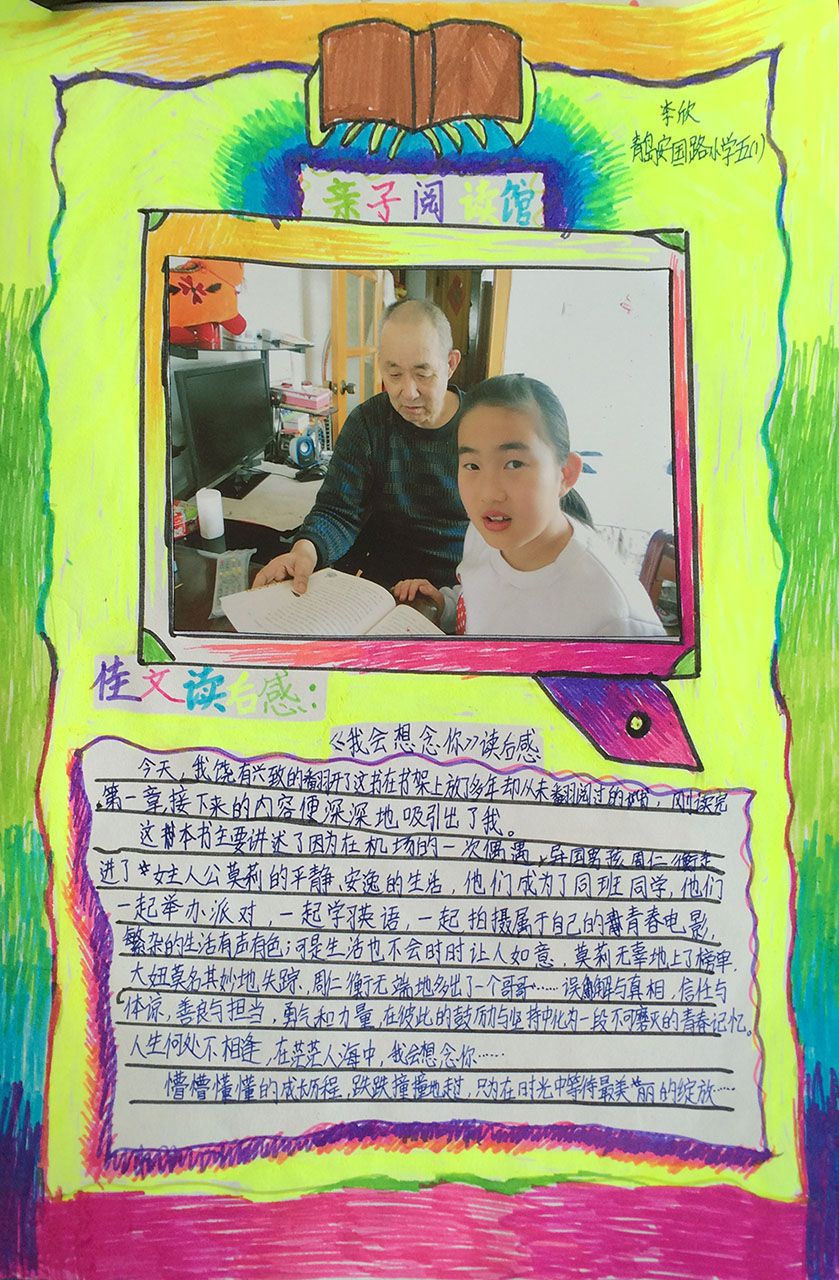 李欣
青岛安国路小学五(1)
亲子阅读馆
佳文读后感:
《我会想念你》读后感
今天,我饶有兴致的翻开了这书在书架上放了多年却从未翻阅过的书,刚读完
第一章,接下来的内容便深深地吸引出了我。
这本书主要讲述了因为在机场的一次偶遇,异国男孩周仁衡走
进了女主人公莫莉的平静、安逸的生活,他们成为了同班同学,他们
一起举办派对,一起学习英语,一起拍摄属于自己的青春电影,
繁杂的生活有声有色;可是生活也不会时时让人如意,莫莉无辜地上了榜单,
大妞莫名其妙地失踪,周仁衡无端地多出了一个哥哥……误解与真相,信任与
体谅,善良与担当,勇气和力量,在彼此的鼓励与坚持中化为一段不可磨灭的青春记忆。
人生何处不相逢,在茫茫人海中,我会想念你……
懵懵懂懂的成长历程,跌跌撞撞地走过,只为在时光中等待最美丽的绽放……